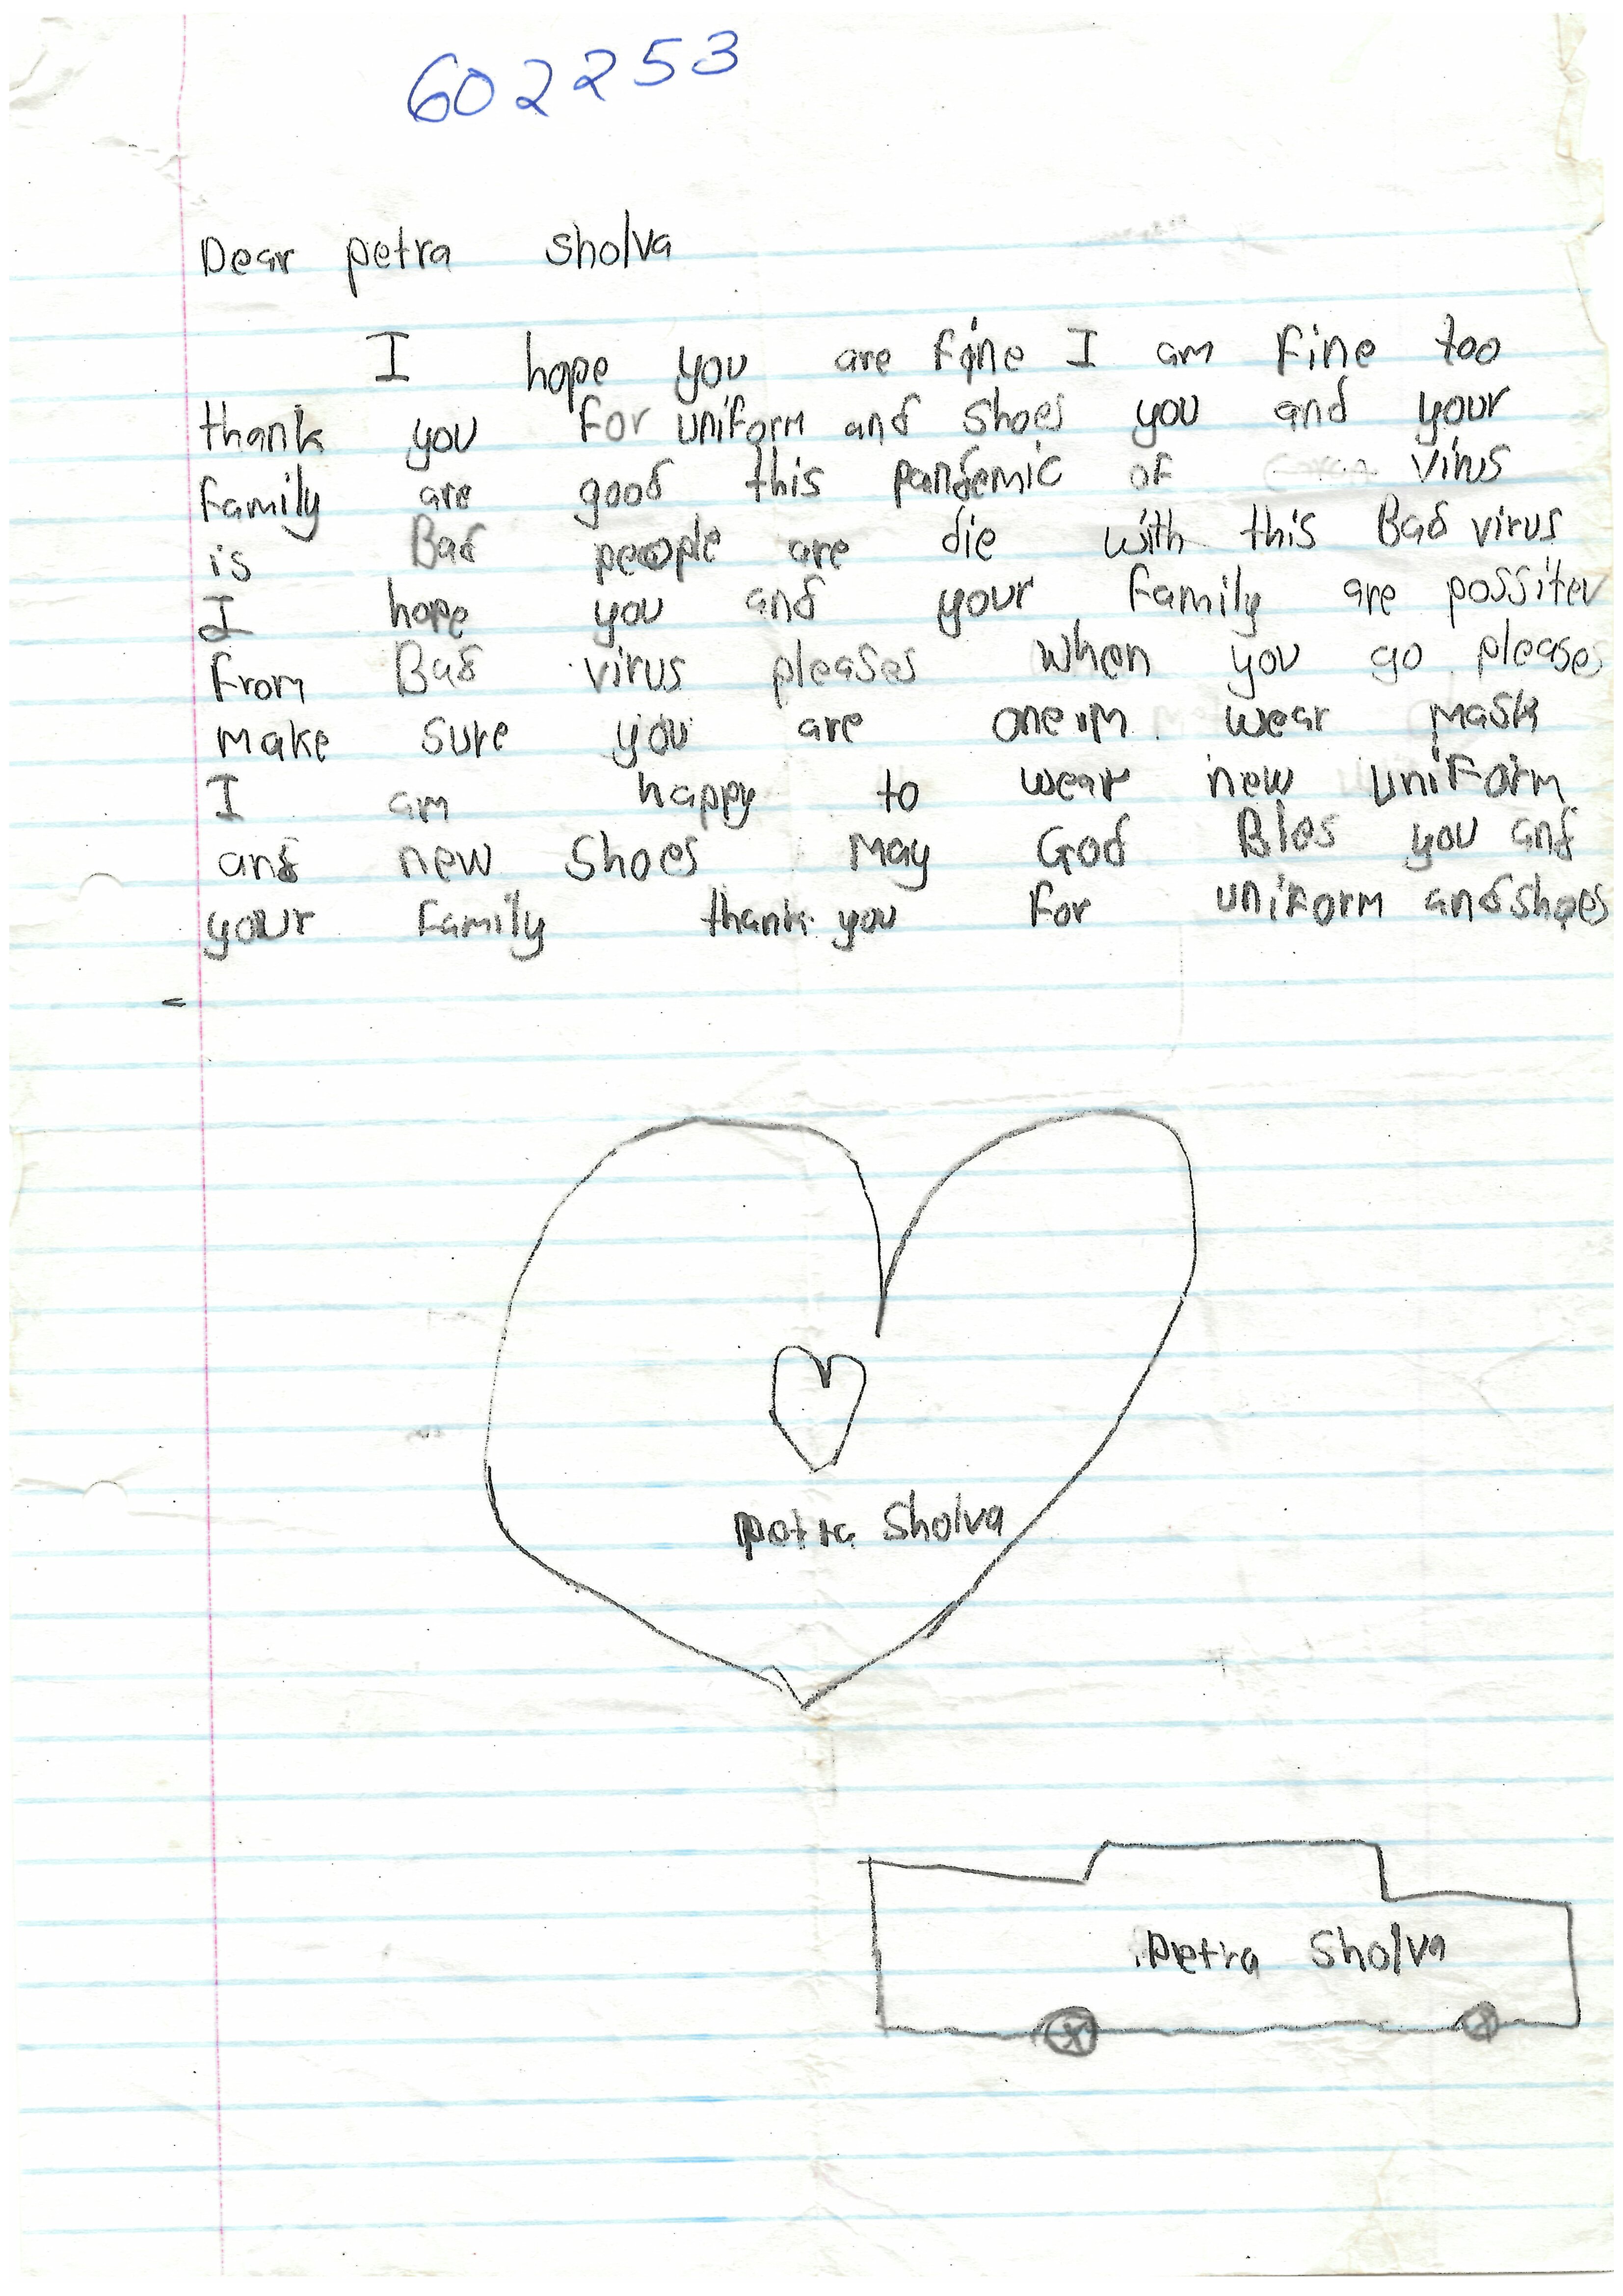 602253
Dear petra Sholva
I hope you are fine I am Fine too
thank you For uniForm and Shoes you and your
family are good this pandemic of virus
is Bad people are die with this Bad virus
I hope you and your Family are possitev
From Bad virus pleases when you go pleases
make sure you are wear mask
I am happy to wear new uniForm
and new Shoes May God Bles you and
your Family thank you For uniForm and shoes
petra Sholva
Petra Sholva